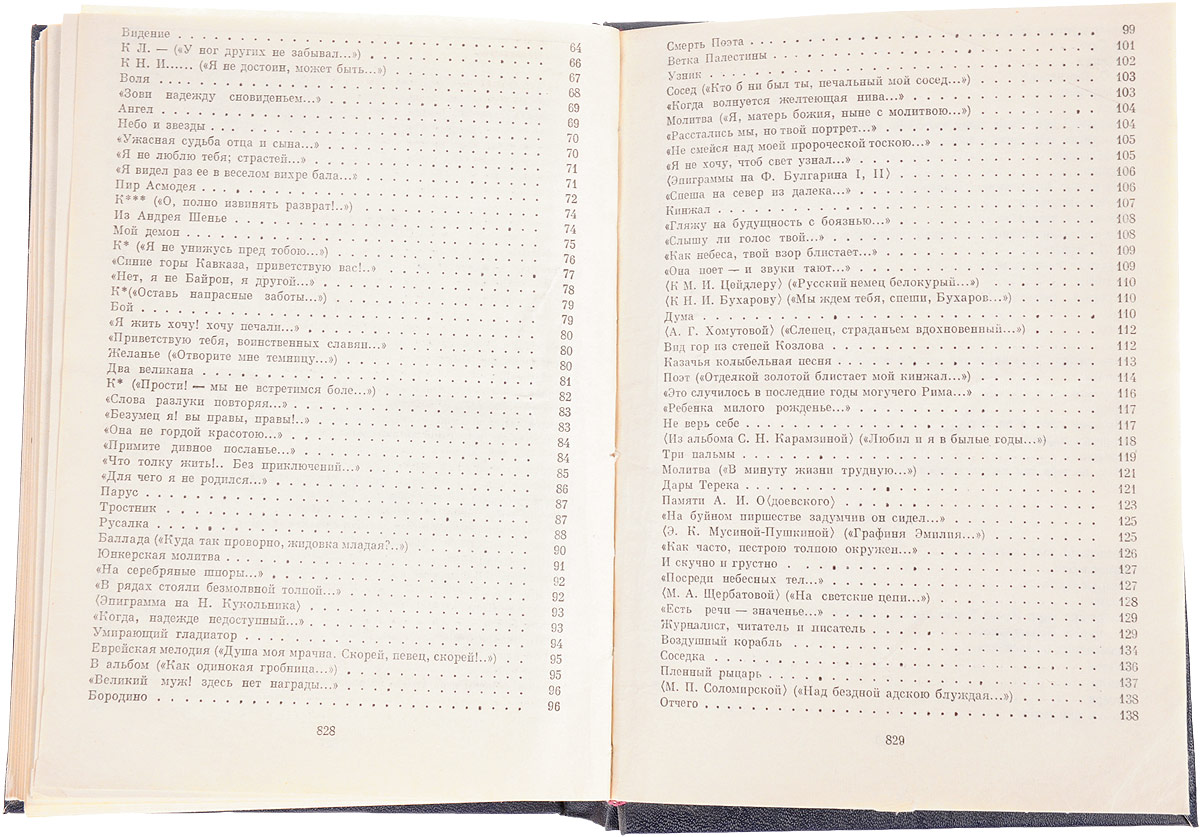 Видение . . . 64
К Л. — («У ног других не забывал...») . . . 66
К Н. И...... («Я не достоин, может быть...») . . . 67
Воля . . . 68
«Зови надежду сновиденьем...» . . . 69
Ангел . . . 69
Небо и звезды . . . 70
«Ужасная судьба отца и сына...» . . . 70
«Я не люблю тебя; страстей...» . . . 71
«Я видел раз ее в веселом вихре бала...» . . . 71
Пир Асмодея . . . 72
К*** («О, полно извинять разврат!..») . . . 74
Из Андрея Шенье . . . 74
Мой демон . . . 75
К* («Я не унижусь пред тобою...») . . . 76
«Синие горы Кавказа, приветствую вас!..» . . . 77
«Нет, я не Байрон, я другой...» . . . 78
К*(«Оставь напрасные заботы...») . . . 79
Бой . . . 79
«Я жить хочу! хочу печали...» . . . 80
«Приветствую тебя, воинственных славян...» . . . 80
Желанье («Отворите мне темницу...») . . . 80
Два великана . . . 81
К* («Прости! — мы не встретимся боле...») . . . 82
«Слова разлуки повторяя...» . . . 83
«Безумец я! вы правы, правы!..» . . . 83
«Она не гордой красотою...» . . . 84
«Примите дивное посланье...» . . . 84
«Что толку жить!.. Без приключений...» . . . 85
«Для чего я не родился...» . . . 86
Парус . . . 87
Тростник . . . 87
Русалка . . . 88
Баллада («Куда так проворно, жидовка младая?..») . . . 90
Юнкерская молитва . . . 91
«На серебряные шпоры...» . . . 92
«В рядах стояли безмолвной толпой...» . . . 92
⟨Эпиграмма на Н. Кукольника⟩ . . . 93
«Когда, надежде недоступный...» . . . 93
Умирающий гладиатор . . . 94
Еврейская мелодия («Душа моя мрачна. Скорей, певец, скорей!..») . . . 95
В альбом («Как одинокая гробница...») . . . 95
«Великий муж! здесь нет награды...» . . . 96
Бородино . . . 96
828
Смерть Поэта . . . 99
Ветка Палестины . . . 101
Узник . . . 102
Сосед («Кто б ни был ты, печальный мой сосед...») . . . 103
«Когда волнуется желтеющая нива...» . . . 103
Молитва («Я, матерь божия, ныне с молитвою...») . . . 104
«Расстались мы, но твой портрет...» . . . 104
«Не смейся над моей пророческой тоскою...» . . . 105
«Я не хочу, чтоб свет узнал...» . . . 105
⟨Эпиграммы на Ф. Булгарина I, II⟩ . . . 106
«Спеша на север из далека...» . . . 106
Кинжал . . . 107
«Гляжу на будущность с боязнью...» . . . 108
«Слышу ли голос твой...» . . . 108
«Как небеса, твой взор блистает...» . . . 109
«Она поет — и звуки тают...» . . . 109
⟨К М. И. Цейдлеру⟩ («Русский немец белокурый...») . . . 110
⟨К Н. И. Бухарову⟩ («Мы ждем тебя, спеши, Бухаров...») . . . 110
Дума . . . 110
⟨А. Г. Хомутовой⟩ («Слепец, страданьем вдохновенный...») . . . 112
Вид гор из степей Козлова . . . 112
Казачья колыбельная песня . . . 113
Поэт («Отделкой золотой блистает мой кинжал...») . . . 114
«Это случилось в последние годы могучего Рима...» . . . 116
«Ребенка милого рожденье...» . . . 117
Не верь себе . . . 117
⟨Из альбома С. Н. Карамзиной⟩ («Любил и я в былые годы...») . . . 118
Три пальмы . . . 119
Молитва («В минуту жизни трудную...») . . . 121
Дары Терека . . . 121
Памяти А. И. О⟨доевского⟩ . . . 123
«На буйном пиршестве задумчив он сидел...» . . . 125
⟨Э. К. Мусиной-Пушкиной⟩ («Графиня Эмилия...») . . . 125
«Как часто, пестрою толпою окружен...» . . . 126
И скучно и грустно . . . 127
«Посреди небесных тел...» . . . 127
⟨М. А. Щербатовой⟩ («На светские цепи...») . . . 128
«Есть речи — значенье...» . . . 129
Журналист, читатель и писатель . . . 129
Воздушный корабль . . . 134
Соседка . . . 136
Пленный рыцарь . . . 137
⟨М. П. Соломирской⟩ («Над бездной адскою блуждая...») . . . 138
Отчего . . . 138
829